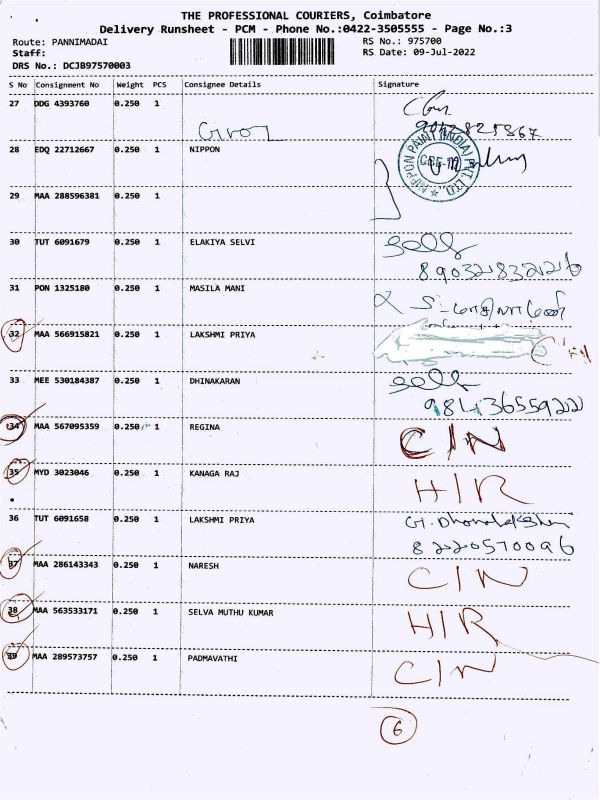 THE PROFESSIONAL COURIERS, Coimbatore
Delivery Runsheet - PCM - Phone No.:0422-3505555 - Page No.:3
Route: PANNIMADAI RS No.: 975700
Staff: RS Date: 09-Jul-2022
DRS No.: DCJB97570003
S No Consignment No Weight PCS Consignee Details Signature
27 DDG 4393760 0.250 1
28 EDQ 22712667 0.250 1 NIPPON
NIPPON PAINT (INDIA) PVT. LTD.
29 MAA 288596381 0.250 1
30 TUT 6091679 0.250 1 ELAKIYA SELVI
31 PON 1325180 0.250 1 MASILA MANI
32 MAA 566915821 0.250 1 LAKSHMI PRIYA
33 MEE 530184387 0.250 1 DHINAKARAN
34 MAA 567095359 0.250 1 REGINA C/N
35 MYD 3023046 0.250 1 KANAGA RAJ H/R
36 TUT 6091658 0.250 1 LAKSHMI PRIYA
8220570096
37 MAA 286143343 0.250 1 NARESH C/N
38 MAA 563533171 0.250 1 SELVA MUTHU KUMAR H/R
39 MAA 289573757 0.250 1 PADMAVATHI C/N
6